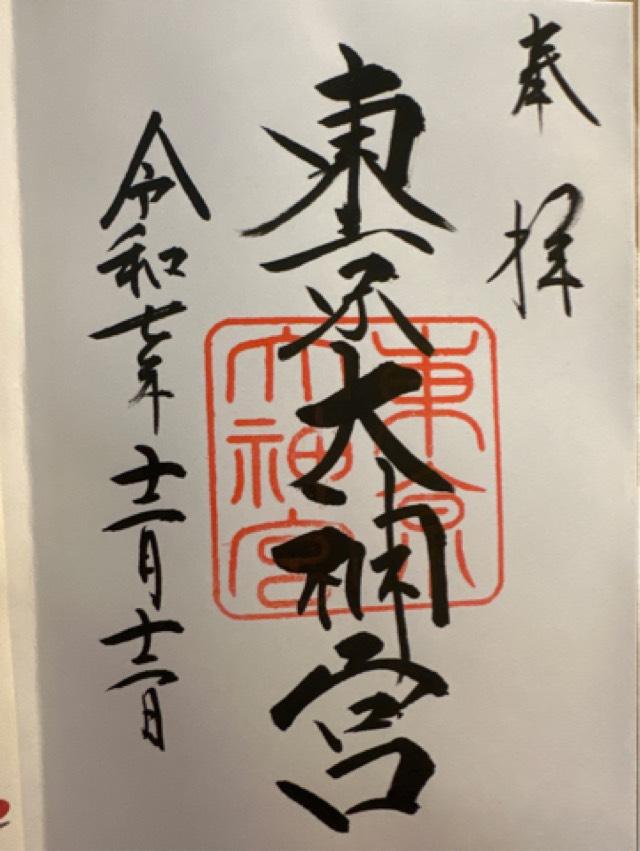 奉拝
東京大神宮
令和七年十二月十二日
東京
大神宮